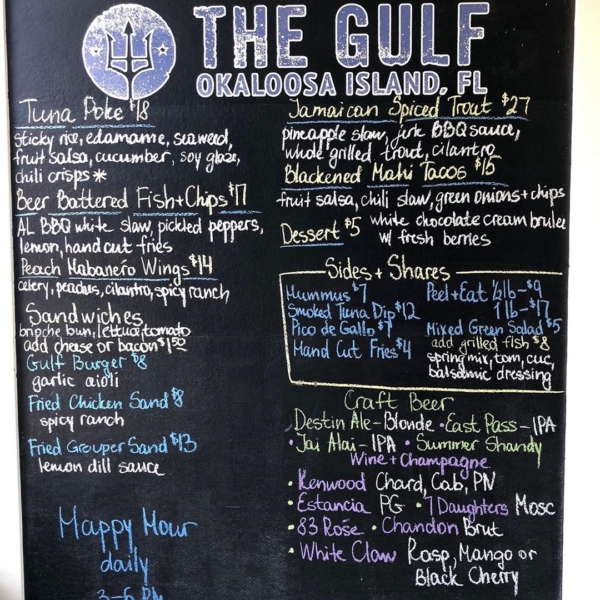 THE GULF
OKALOOSA ISLAND, FL
Tuna Poke $18
sticky rice, edamame, seaweed,
fruit salsa, cucumber, soy glaze,
chili crisps *
Beer Battered Fish + Chips $17
AL BBQ white slaw, pickled peppers,
lemon, hand cut fries
Peach Habanero Wings $14
celery, peaches, cilantro, spicy ranch
Sandwiches
brioche bun, lettuce, tomato
add cheese or bacon $1.50
Gulf Burger $8
garlic aioli
Fried Chicken Sand $8
spicy ranch
Fried Grouper Sand $13
lemon dill sauce
Happy Hour
daily
3-6 PM
Jamaican Spiced Trout $27
pineapple slaw, jerk BBQ sauce,
whole grilled trout, cilantro
Blackened Mahi Tacos $15
fruit salsa, chili slaw, green onions + chips
Dessert $5 white chocolate cream brulee
w/ fresh berries
Sides + Shares
Hummus $7
Smoked Tuna Dip $12
Pico de Gallo $7
Hand Cut Fries $4
Peel + Eat 1/2 lb - $9
1 lb - $17
Mixed Green Salad $5
add grilled fish $8
spring mix, tom, cuc,
balsamic dressing
Craft Beer
Destin Ale - Blonde • East Pass - IPA
• Jai Alai - IPA • Summer Shandy
Wine + Champagne
• Kenwood Chard, Cab, PN
• Estancia PG • 7 Daughters Mosc
• 83 Rose • Chandon Brut
• White Claw Rasp, Mango or
Black Cherry